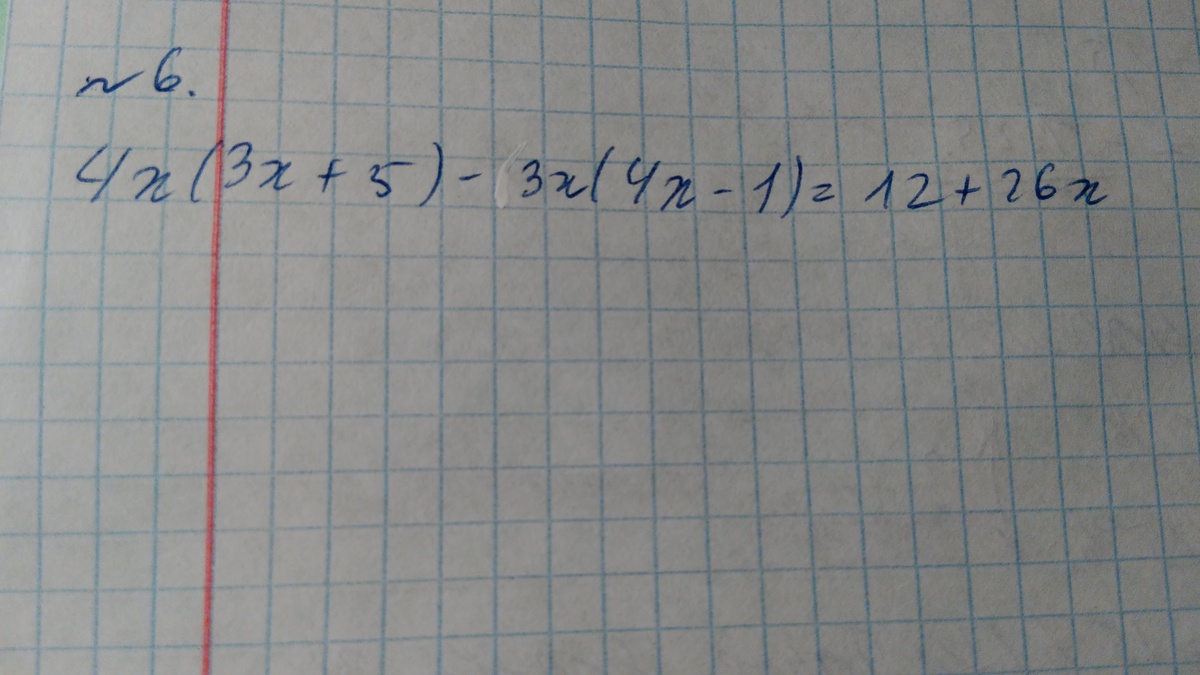 № 6.
4x(3x+5)-3x(4x-1)=12+26x